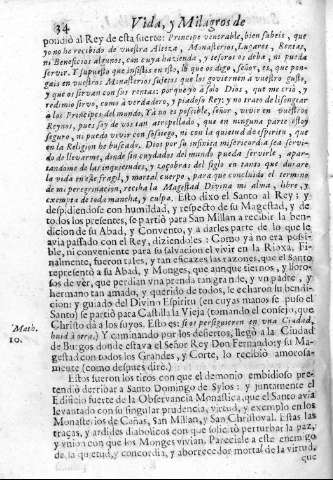 34 Vida, y Milagros de
pondiò al Rey de esta suerte: Principe venerable, bien sabeis, que
yo no he recibido de vuestra Alteza, Monasterios, Lugares, Rentas,
ni Beneficios algunos, con cuya hazienda, y tesoros os deba, ni pueda
servir. Y supuesto que insistis en esto, lo que os digo, señor, es, que pon-
gais en vuestros Monasterios sujetos que los goviernen a vuestro gusto,
y que os sirvan con sus rentas: porque yo à solo Dios, que me criò, y
redimiò sirvo, como à verdadero, y piadoso Rey; y no trato de lisongear
à los Principes del mundo. Yà no es possible, señor, vivir en vuestros
Reynos, pues soy de vos tan atropellado, que en ninguna parte estoy
seguro, ni puedo vivir con sossiego, ni con la quietud de espiritu, que
en la Religion he buscado. Dios por su infinita misericordia sea servi-
do de llevarme, donde sin cuydados del mundo pueda servirle, apar-
tandome de las inquietudes, y zozobras del siglo en tanto que durare
la vida en este fragil, y mortal cuerpo, para que concluido el termino
de mi peregrinacion, reciba la Magestad Divina mi alma, libre, y
exempta de toda mancha, y culpa. Esto dixo el Santo al Rey; y
despidiendose con humildad, y respeto de su Magestad, y de
todos los presentes, se partiò para San Millan a recibir la bendi-
cion de su Abad, y Convento, y a darles parte de lo que le
avia passado con el Rey, diziendoles: Como yà no era possi-
ble, ni conveniente para su salvacion el vivir en la Rioxa. Fi-
nalmente, fueron tales, y tan eficazes las razones, que el Santo
representò a su Abad, y Monges, que aunque tiernos, y lloro-
sos de vèr, que perdian vna prenda tan grande, y vn padre, y
hermano tan amado, y querido de todos, le echaron su bendi-
cion; y guiado del Divino Espiritu (en cuyas manos se puso el
Santo) se partiò para Castilla la Vieja (tomando el consejo, que
Christo dà a los suyos. Esto es: si os persiguieren en vna Ciudad,
Math. 10. huid à otra.) Y caminando por los desiertos, llegò a la Ciudad
de Burgos donde estava el Señor Rey Don Fernando; y su Ma-
gestad con todos los Grandes, y Corte, lo recibiò amorosa-
mente (como despues dirè.)
Estos fueron los tiros con que el demonio embidioso pre-
tendiò derribar a Santo Domingo de Sylos: y juntamente el
Edificio fuerte de la Observancia Monastica, que el Santo avia
levantado con su singular prudencia, virtud, y exemplo en los
Monasterios de Cañas, San Millan, y San Christoval. Estas las
traças, y ardides diabolicos con que solicitò perturbar la paz,
y vnion con que los Monges vivian. Pareciale a este enemigo
de la quietud, y concordia, y aborrecedor mortal de la virtud,
que